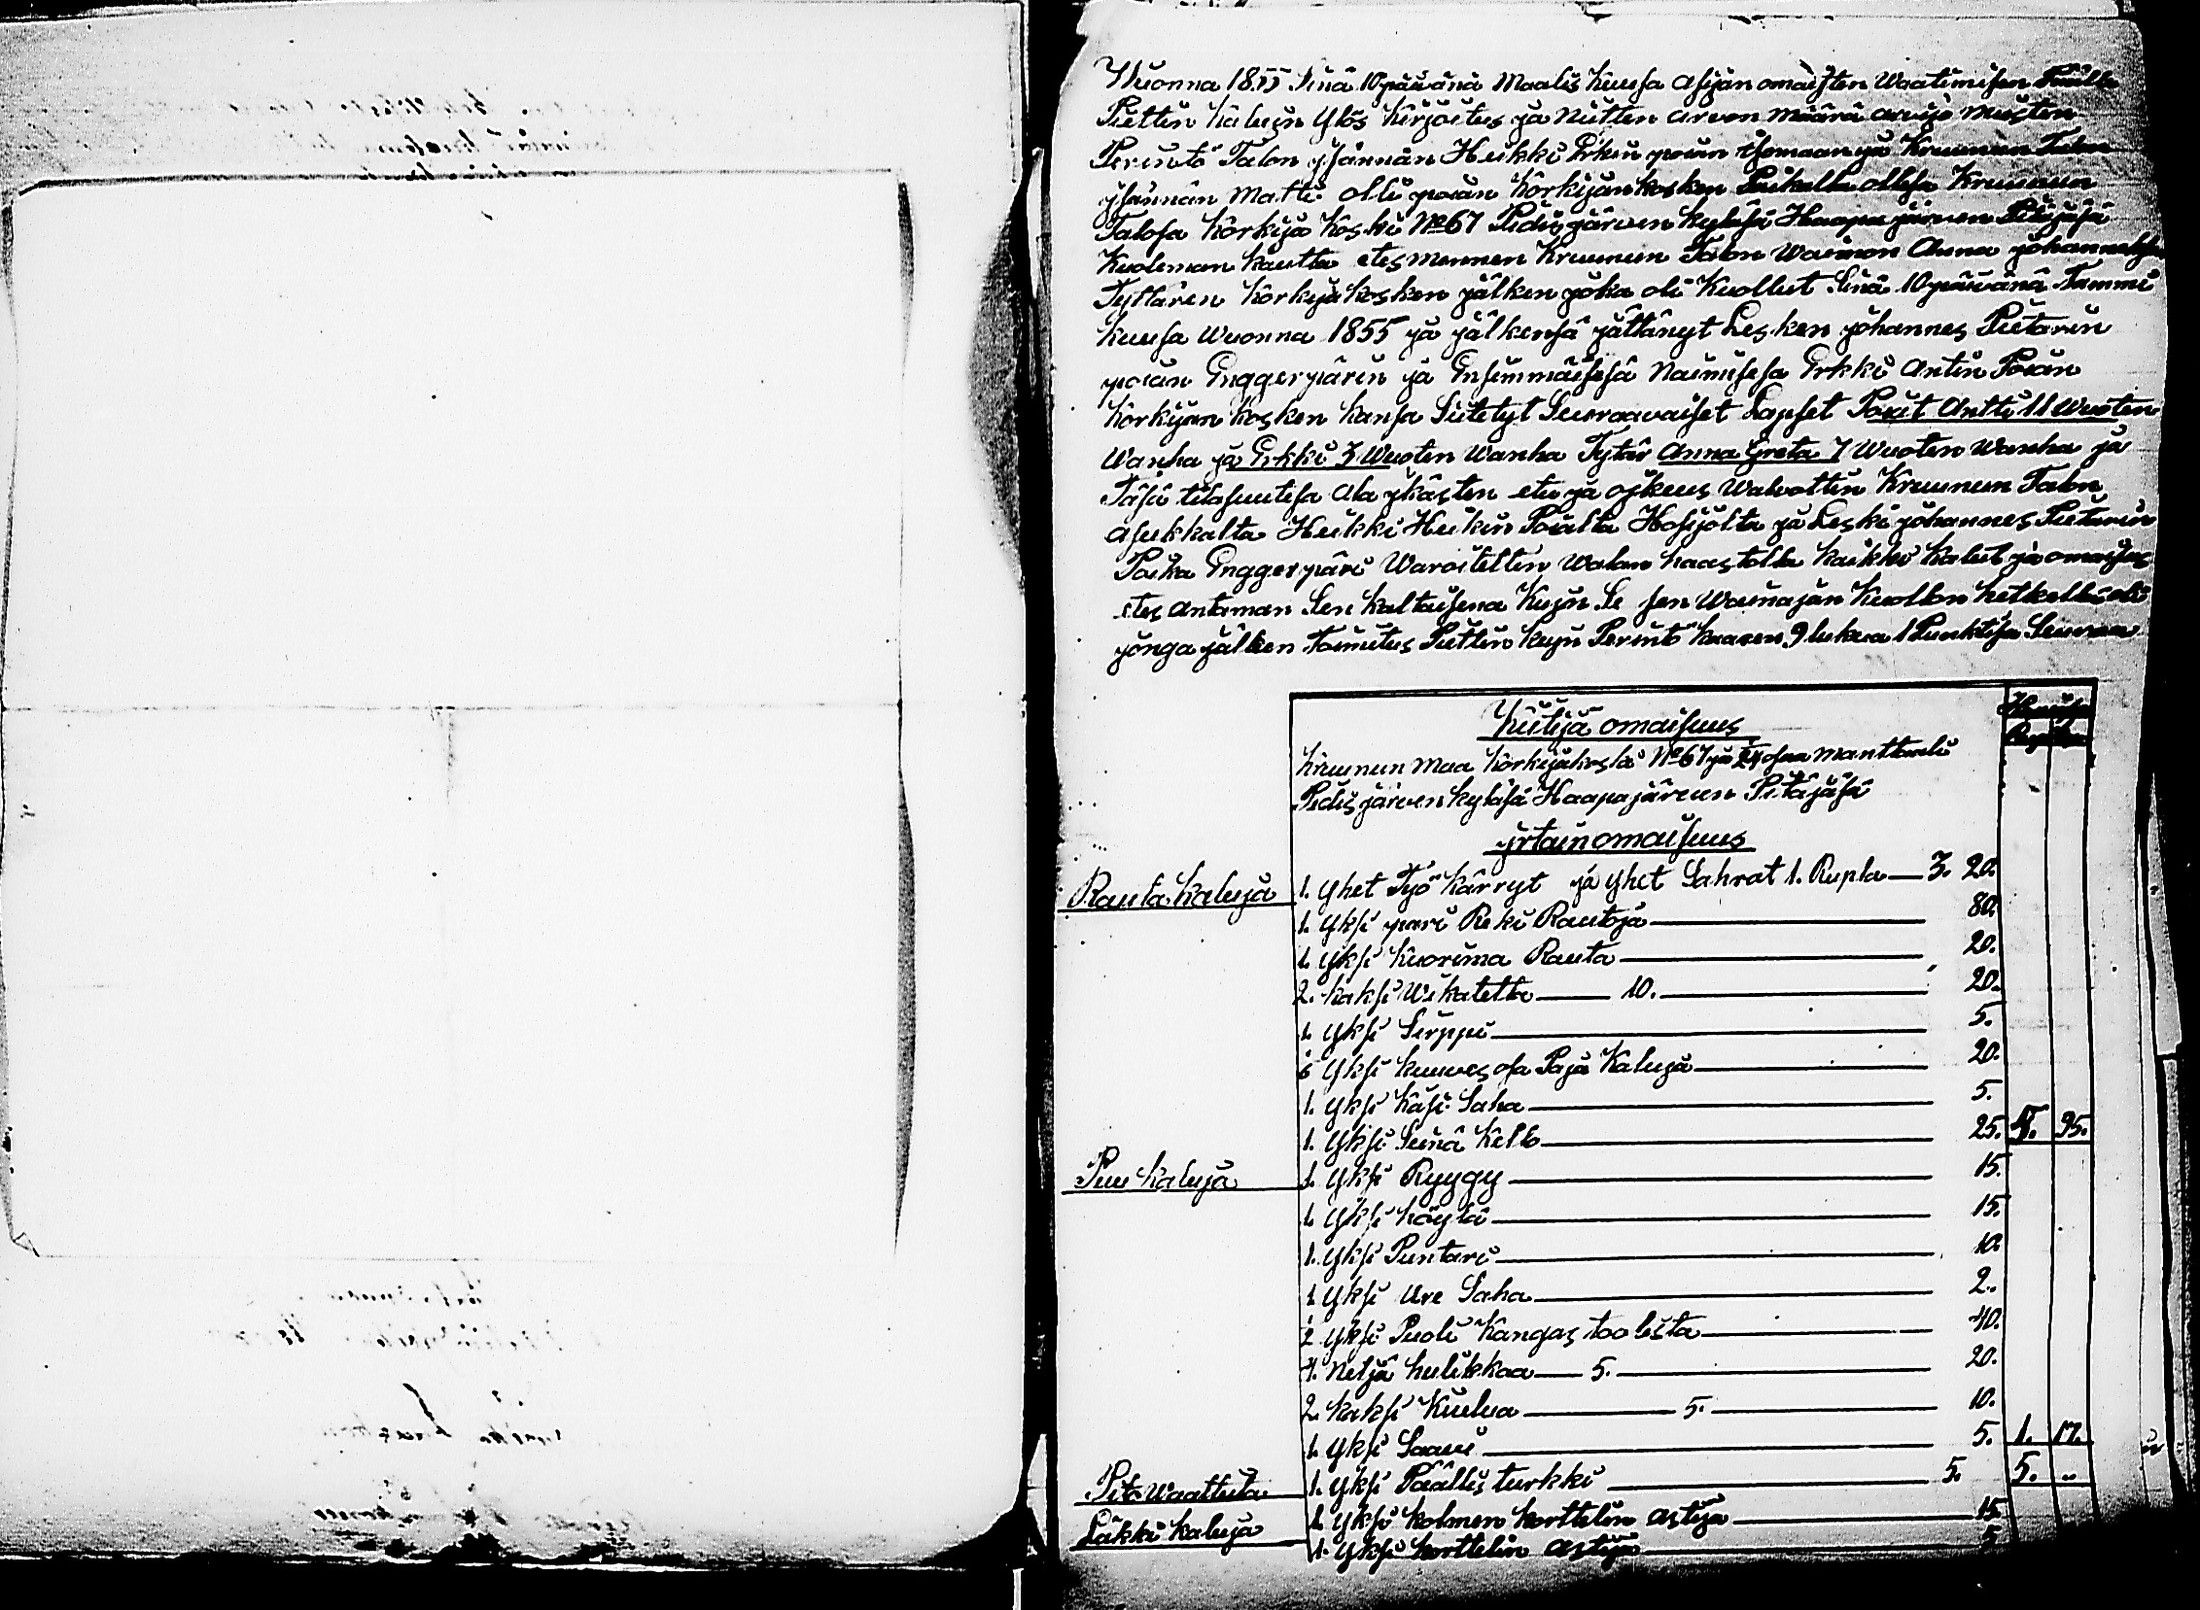 Wuonna 1855 Sinä 10 päiwänä Maalis Kuusa Asijan omaisten Waatimisen
Piettin Kalujn Ylös Kirjoitus ja Niitten arwon määrä arwijo Miesten
Perintö Talon jsännän Heikki Erkin poian ja Kruunun Talon
jsännän Matti Olli poian Körkijänkosken Paikalla ollesa Kruunun
Talosa Körkijä Koski No 67 Pidisjärwen kyläsä Haapajärwen Pitäjäsä
Kuoleman kautta etes mennen Kruunun Talon Waimon Anna johannes
Tyttären Körkijäkosken jälken joka oli Kuollut Sinä 10 päiwänä Tammi
kuusa Wuonna 1855 ja jälkensä jättänyt Lesken johannes Pietarin
poian Enggerpärin ja Ensimmäisesä Naimisesa Erkki Antin Poian
Körkijän kosken kansa Siitetyt Seuraavaiset Lapset Poiat Antti 11 Wuoten
Wanha ja Erkki 3 Wuoten Wanha Tytär Anna Greta 7 Wuoten Wanha ja
Täsä tilasuutesa Ala jkästen etu ja oikeus Walvottin Kruunun Talon
Asukkalta Heikki Heikin Poialta Hosijolta ja Leski johannes Pietarin
Poika Enggerpäri Waroitelttin Walan haastolla kaikki kalut ja omaisus
etes Antaman Sen kaltaisena Kujn Se sen Wainajan Kuollon hetkellä oli
jonga jälken Toimitus Piettin kujn Perintö kaaren 9 lukua 1 Punktisa Seuraa
Kiitijä omaisuus
Kruunun maa Körkijäkoski No 67 ja osaa manttaali
Pidisjärwen kyläsä Haapajärwen Pitäjäsä
jrtain omaisuus
Rauta kaluja 1. Yhet Työ kärryt ja yhet Sahrat 1. Rupla 3. 20.
1. Yksi pari Reki Rautoja 80.
1. Yksi Kuorima Rauta 20.
2. kaksi Wikatetta 10. 20.
1. Yksi Sirppi 5.
Yksi kuuves osa Paja Kaluja 20.
1. Yksi Käsi Saha 5.
1. Yksi Seinä Kello 25. 4. 95.
Puu kaluja 1. Yksi Ryygy 15.
1. Yksi höylä 15.
1. Yksi Puntari 10.
1. Yksi Ure Saha 2.
Yksi Puoli Kangas toolista 40.
4. Neljä hulikkaa 5. 20.
2. kaksi Kiulua 5. 10.
1. Yksi Saavi 5. 1. 17.
Pito Waatteita 1. Yksi Päällis turkki 5. 5. "
Läkki kaluja 1. Yksi kolmen korttelin astija 15
1. Yksi korttelin astija 5